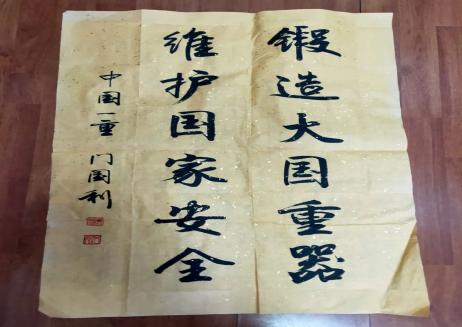 锻造大国重器
维护国家安全
中国一重 门国利